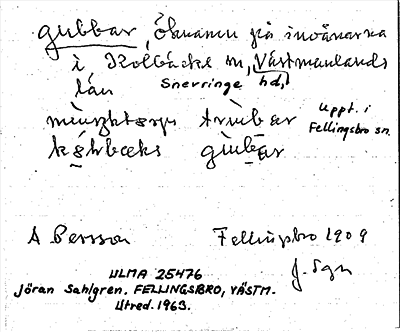 gubbar, öknamn på invånarna
i Kolbäcks sn, Västmanlands
län Snevringe hd,
Uppt. i
Fellingsbro sn.
A Persson Fellingsbro 1909
J. Sgn
ULMA 25476
Jöran Sahlgren. FELLINGSBRO, VÄSTM.
Utred. 1963.